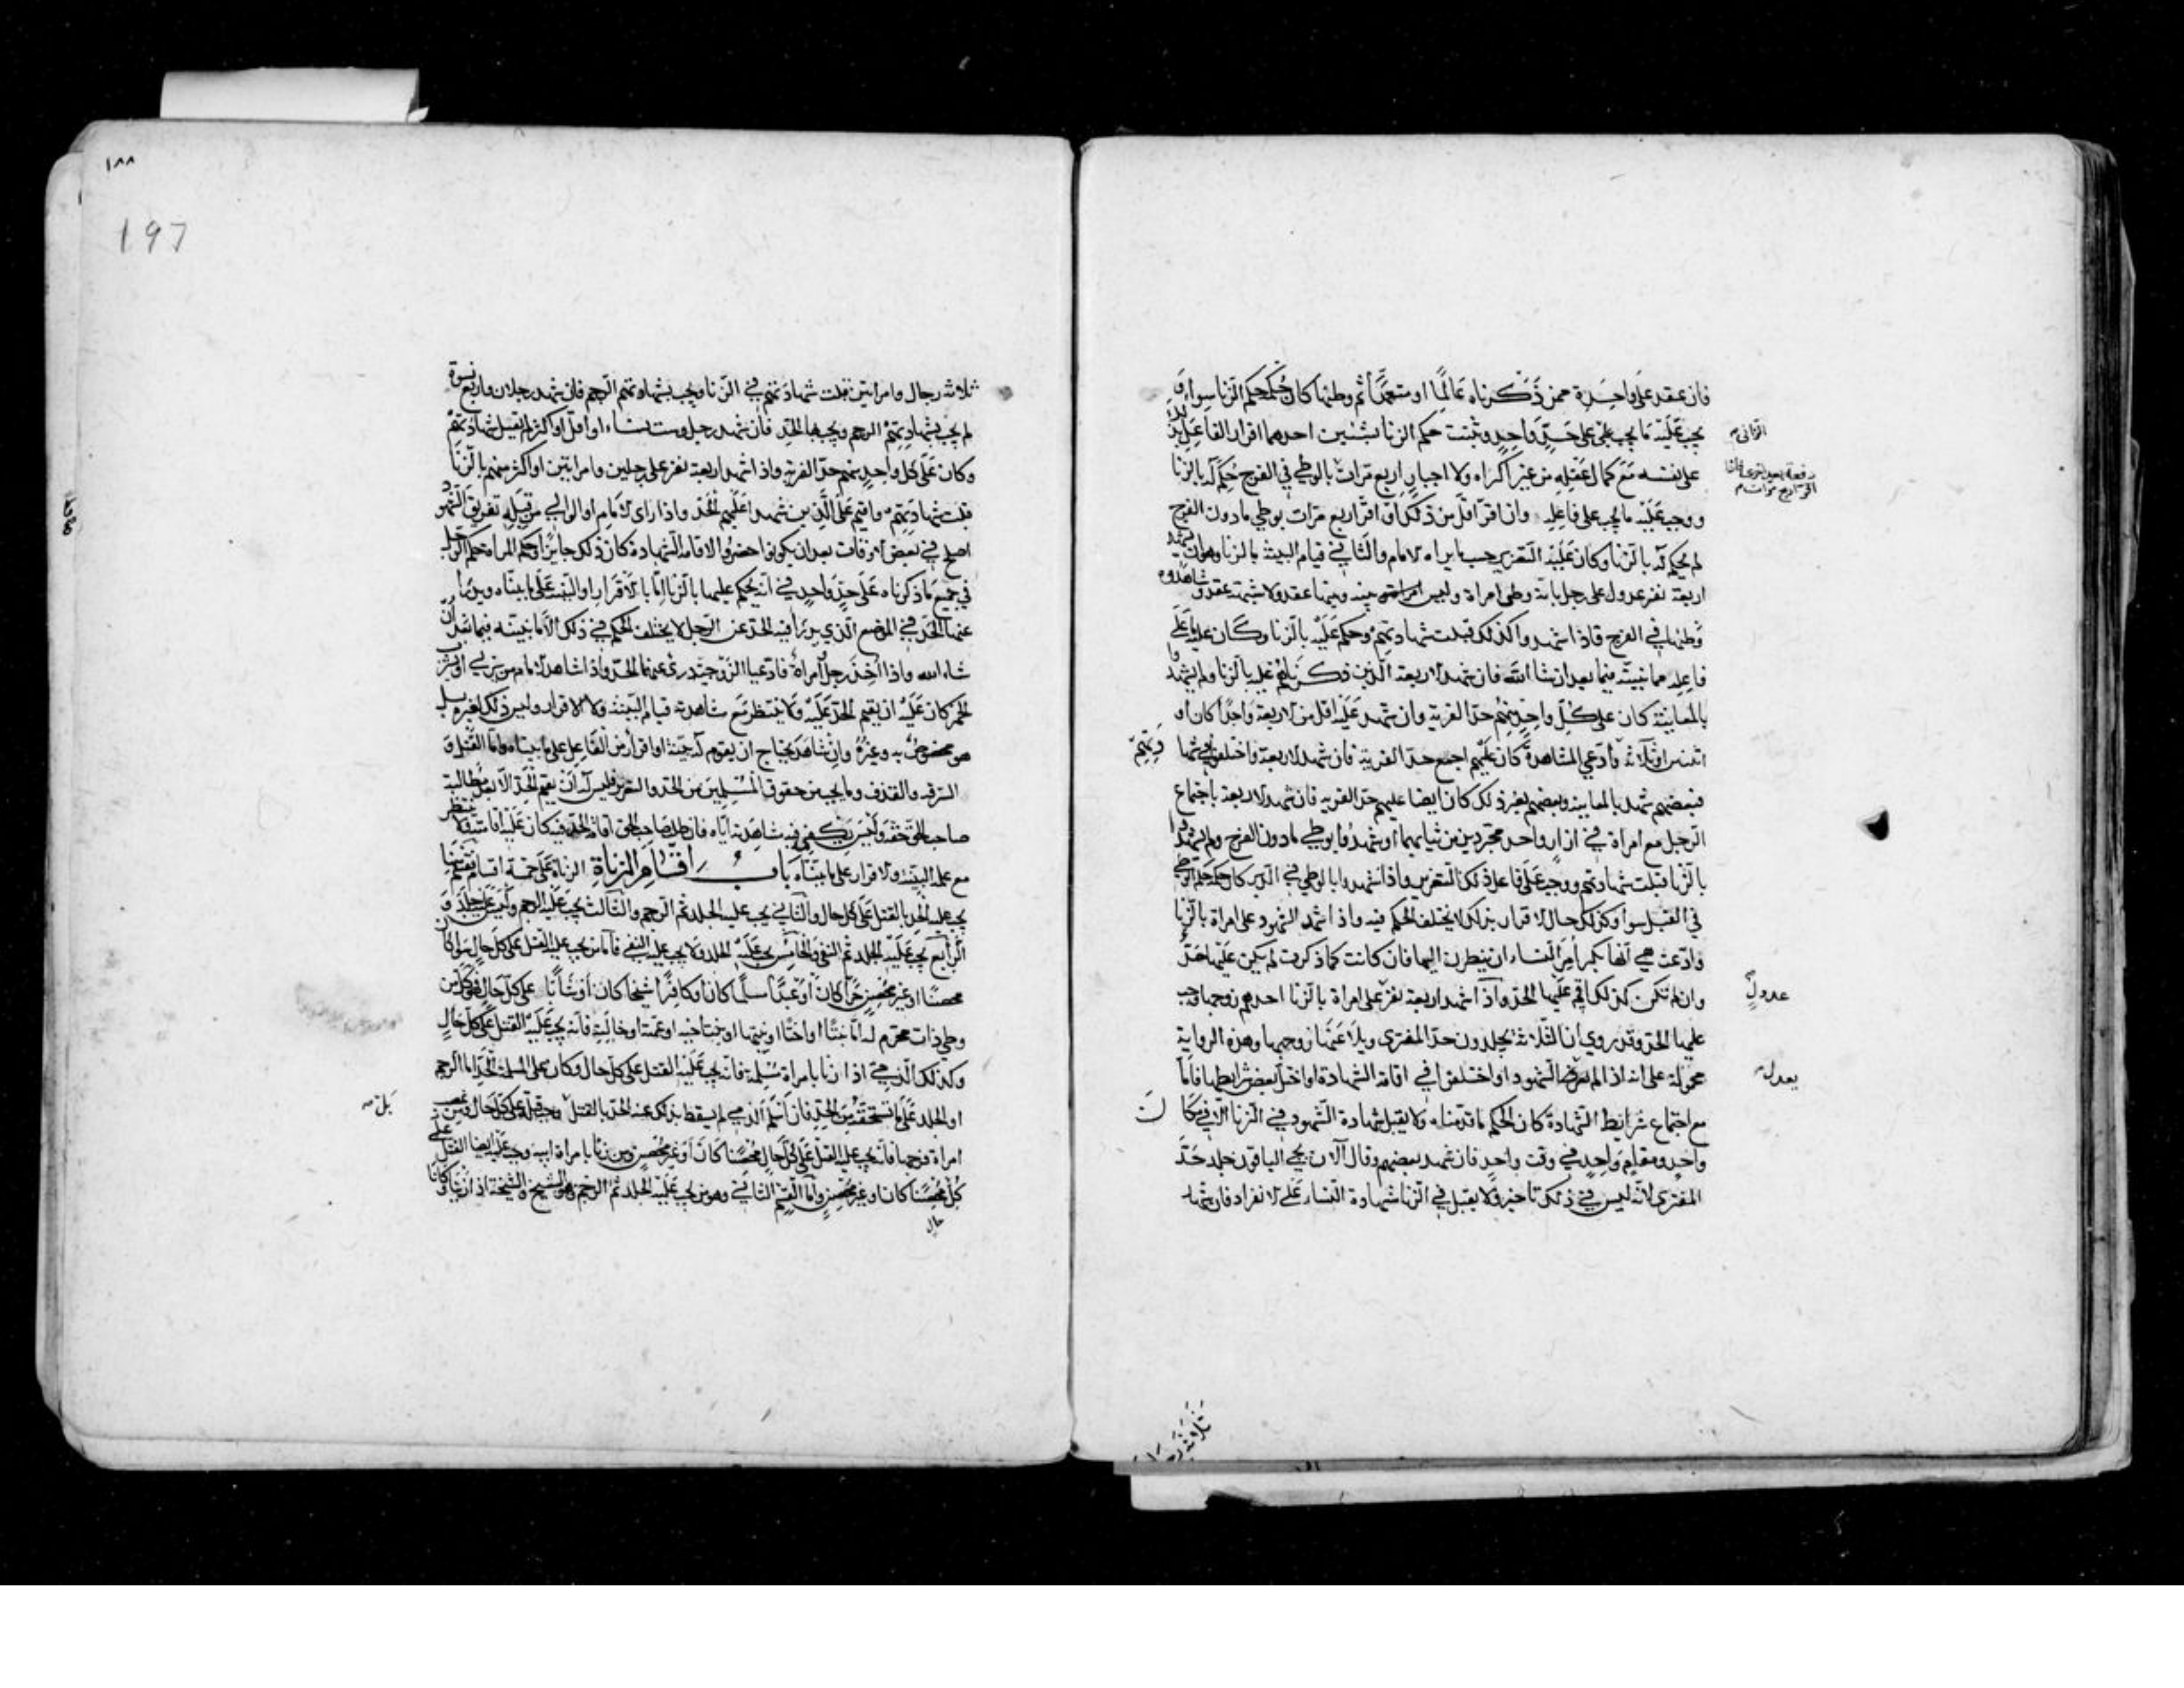 فان عقد على واحدة ممن ذكرناه عالما او متعمدا ثم وطئها كان حكمه حكم الزنا سواء و
يجب عليه ما يجب على على حد واحد وثبت حكم الزنا بشئين احدهما اقرار الفاعل بذلك
الزانى
على نفسه مع كمال عقله من غير اكراه ولا اجبار اربع مرات بالوطى في الفرج حكم له بالزنا
دفعة بعد اخرى فاذا
اقر اربع مرات
ووجب عليه ما يجب على فاعله وان اقر اقل من ذلك او اقر اربع مرات بوطي ما دون الفرج
لم يحكم له بالزنا وكان عليه التعزير حسب ما يراه الامام والثاني قيام البينة بالزنا وهو ان يشهد
اربعة نفر عدول على رجل بانه وطى امراة وليس بينه وبينها عقد ولا شبهة عقد وشاهدوه
وطئها في الفرج فاذا شهدوا كذلك قبلت شهادتهم وحكم عليه بالزنا وكان عليه ما على
فاعله مما نبينه فيما بعد ان شا الله فان شهد الاربعة الذين ذكرناهم عليه بالزنا ولم يشهدوا
بالمعاينة كان على كل واحد منهم حد الفرية وان شهد عليه اقل من الاربعة واحدا كان او
اثنين او ثلاثة وادعي المشاهدة كان عليهم اجمع حد الفرية فان شهد الاربعة واختلفوا في شها
دتهم
فبعضهم شهد بالمعاينة وبعضهم بغير ذلك كان ايضا عليهم حد الفرية فان شهد الاربعة باجتماع
الرجل مع امراة في ازار واحد مجردين من ثيابهما او شهدوا بوطي ما دون الفرج ولم يشهدوا
بالزنا قبلت شهادتهم ووجب على فاعل ذلك التعزير واذا شهدوا بالوطي في الدبر كان حكمه حكم الوطي
في القبل سوا وكذلك حال الاقرار بذلك لا يختلف الحكم فيه واذا شهد الشهود على امراة بالزنا
وادعت هي انها بكر امر النساء ان ينظرن اليها فان كانت كما ذكرت لم يكن عليها حد
وان لم تكن كذلك اقيم عليها الحد واذا شهد اربعة نفر على امراة بالزنا احدهم زوجها وجب
عدول
عليها الحد وقد روي ان الثلاثة يجلدون حد المفترى ويلاعنها زوجها وهذه الرواية
محمولة على انه اذا لم الشهود او اختلفوا في اقامة الشهادة او اختل بعض شرايطها فاما
يعدل
مع اجتماع شرايط الشهادة كان الحكم ما قدمناه ولا يقبل شهادة الشهود في الزنا الا في مكا
ن
واحد ومقام واحد في وقت واحد فان شهد بعضهم وقال الآن يجي الباقون جلد حد
المفترى لانه ليس في ذلك تاخير ولا يقبل في الزنا شهادة النساء على الانفراد فان شهد
ثلاثة رجال
١٨٨
197
ثلاثة رجال وامراتين قبلت شهادتهم في الزنا ويجب بشهادتهم الرجم فان شهد رجلان واربع نسوة
لم يجب بشهادتهم الرجم ويجب بها الحد فان شهد رجل وست نساء او اقل او اكثر لم تقبل شهادتهم
وكان على كل واحد منهم حد الفرية واذا شهد اربعة نفر على رجلين وامراتين او اكثر منهم بالزنا
قبلت شهادتهم واقيم على الذين شهدوا عليهم الحد واذا راى الامام او الوالي من قبله تفريق الشهود
اصلح في بعض الاوقات بعد ان يكونوا حضروا لاقامة الشهادة كان ذلك جايزا وحكم المراة حكم الرجل
في جميع ما ذكرناه على حد واحد في انه يحكم عليها بالزنا اما بالاقرار او البينة على ما بيناه ويدرا
عنها الحد في الموضع الذي يدرا فيه الحد عن الرجل لا يختلف الحكم في ذلك الا ما نبينه فيما بعد ان
شاء الله واذا اخذ رجل وامراة فادعيا الزوجية درئ عنهما الحد واذا شاهد الامام من يزني او يشرب
الخمر كان عليه ان يقيم الحد عليه ولا ينتظر مع شاهدته قيام البينة ولا الاقرار وليس ذلك لغيره بل
هو مخصوص به وغيره وان شاهد يحتاج ان يقوم له بينة او اقرار من الفاعل على ما بيناه واما القتل و
السرقة والقذف وما يجب من حقوق المسلمين من الحد والتعزير فليس له ان يقيم الحد الا بعد مطالبة
صاحب الحق حقه وليس يكفي فيه شاهدته اياه فان طلب صاحب الحق اقامة الحد فيه كان عليه اقامته ولا ينتظر
مع علمه البينة والاقرار على ما بيناه باب اقسام الزناة الزناة على خمسة اقسام قسم منها
يجب عليه الحد بالقتل على كل حال والثاني يجب عليه الجلد ثم الرجم والثالث يجب عليه الرجم وليس عليه جلد و
الرابع يجب عليه الجلد ثم النفي والخامس يجب عليه الجلد ولا يجب عليه النفي فاما من يجب عليه القتل على كل حال سوا كان
محصنا او غير محصن حرا كان او عبدا مسلما كان او كافرا شيخا كان او شابا على كل حال فهو كل من
وطي ذات محرم له اما بنتا او اختا او بنتيهما او بنت اخيه او عمته او خالته فانه يجب عليه القتل على كل حال
وكذلك الذمي اذا زنا بامراة مسلمة فانه يجب عليه القتل على كل حال وكان على المسلمة الحد اما الرجم
او الجلد على ما تستحقه من الحد فان اسلم الذمي لم يسقط بذلك عنه الحد بالقتل ووجب قتله على كل حال ومن غصب
بل
امراة فرجها فانه يجب عليه القتل على كل حال محصنا كان او غير محصن ومن زنا بامراة ابيه وجب عليه ايضا القتل على
كل محصنا كان او غير محصن واما القسم الثاني وهو من يجب عليه الجلد ثم الرجم فهو الشيخ والشيخة اذا زنيا وكانا
حال